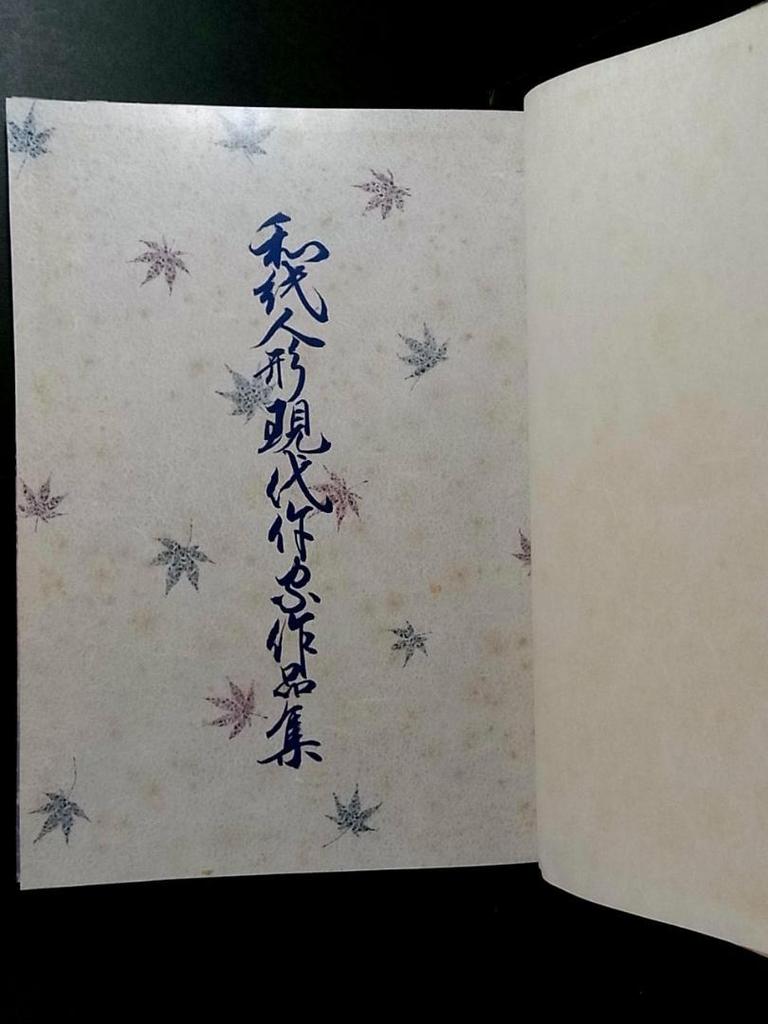 和紙人形現代作家作品集